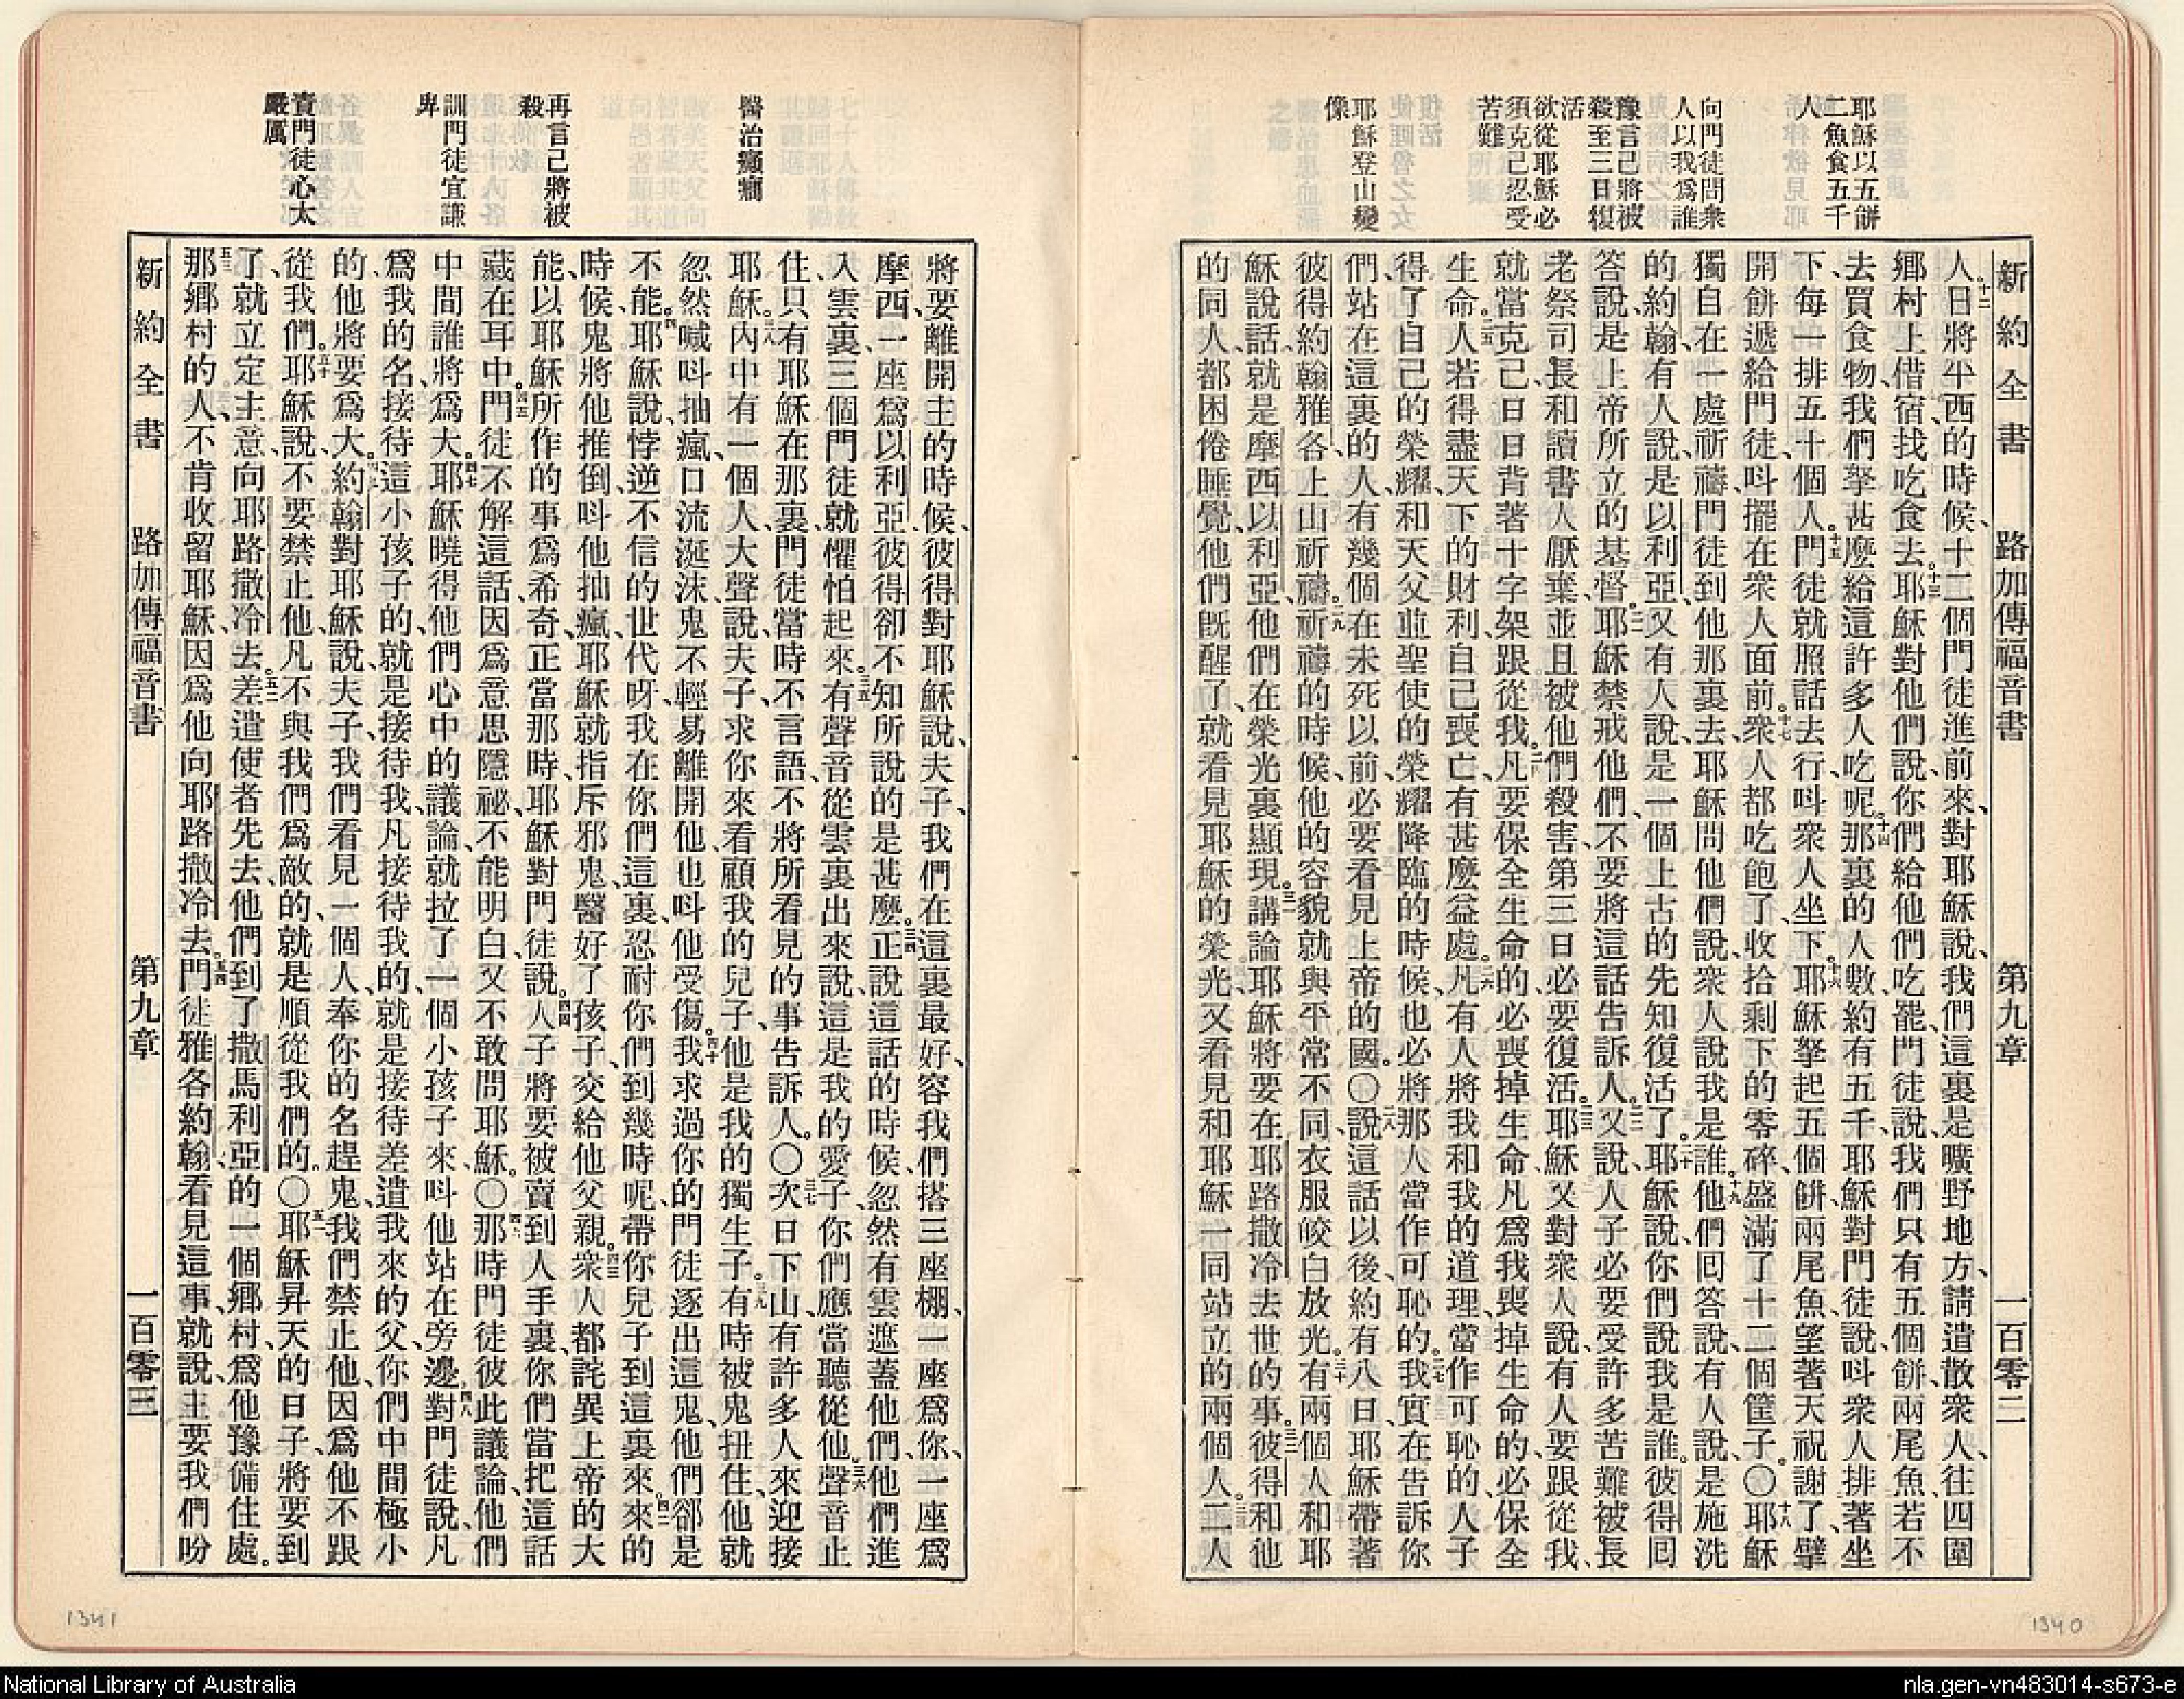 耶穌以五餅
二魚食五千
人
向門徒問衆
人以我爲誰
豫言己將被
殺至三日復
活
欲從耶穌必
須克己忍受
苦難
耶穌登山變
像
新約全書 路加傳福音書 第九章 一百零二
人。十二日將平西的時候、十二個門徒進前來、對耶穌說、我們這裏是曠野地方、請遣散衆人、往四圍
鄉村上借宿找吃食去。十三耶穌對他們說、你們給他們吃罷、門徒說、我們只有五個餅、兩尾魚、若不
去買食物、我們拏甚麼給這許多人吃呢。十四那裏的人數約有五千、耶穌對門徒說、呌衆人排著坐
下、每一排五十個人。十五門徒就照話去行、呌衆人坐下。十六耶穌拏起五個餅、兩尾魚、望著天祝謝了、擘
開餅、遞給門徒、呌擺在衆人面前。十七衆人都吃飽了、收拾剩下的零碎、盛滿了十二個筐子。〇十八耶穌
獨自在一處祈禱、門徒到他那裏去、耶穌問他們說、衆人說我是誰。十九他們囘答說、有人說、是施洗
的約翰、有人說、是以利亞、又有人說、是一個上古的先知復活了。二十耶穌說、你們說我是誰。彼得囘
答說、是上帝所立的基督。二一耶穌禁戒他們、不要將這話告訴人。二二又說、人子必要受許多苦難、被長
老祭司長和讀書人厭棄、並且被他們殺害、第三日必要復活。二三耶穌又對衆人說、有人要跟從我、
就當克己、日日背著十字架跟從我。二四凡要保全生命的、必喪掉生命、凡爲我喪掉生命的、必保全
生命。二五人若得盡天下的財利、自己喪亡、有甚麼益處。二六凡有人將我和我的道理、當作可恥的、人子
得了自己的榮耀、和天父並聖使的榮耀降臨的時候、也必將那人當作可恥的。二七我實在告訴你
們、站在這裏的人、有幾個在未死以前、必要看見上帝的國。〇二八說這話以後、約有八日、耶穌帶著
彼得約翰雅各上山祈禱。二九祈禱的時候、他的容貌就與平常不同、衣服皎白放光。三十有兩個人和耶
穌說話、就是摩西以利亞、他們在榮光裏顯現。三一講論耶穌將要在耶路撒冷去世的事。三二彼得和他
的同人、都困倦睡覺、他們旣醒了、就看見耶穌的榮光、又看見和耶穌一同站立的兩個人。三三二人
醫治癲癎
再言己將被
殺
訓門徒宜謙
卑
責門徒心太
嚴厲
將要離開主的時候、彼得對耶穌說、夫子、我們在這裏最好、容我們搭三座棚、一座爲你、一座爲
摩西、一座爲以利亞、彼得卻不知所說的是甚麼。三四正說這話的時候、忽然有雲遮蓋他們、他們進
入雲裏、三個門徒就懼怕起來。三五有聲音從雲裏出來說、這是我的愛子、你們應當聽從他。三六聲音止
住、只有耶穌在那裏、門徒當時不言語、不將所看見的事告訴人。〇三七次日下山、有許多人來迎接
耶穌。三八內中有一個人、大聲說、夫子、求你來看顧我的兒子、他是我的獨生子。三九有時被鬼扭住、他就
忽然喊呌抽瘋、口流涎沫、鬼不輕易離開他、也呌他受傷。四十我求過你的門徒逐出這鬼、他們卻是
不能。四一耶穌說、悖逆不信的世代呀、我在你們這裏、忍耐你們到幾時呢、帶你兒子到這裏來。四二來的
時候、鬼將他推倒、呌他抽瘋、耶穌就指斥邪鬼、醫好了孩子、交給他父親。四三衆人都詫異上帝的大
能、以耶穌所作的事爲希奇、正當那時、耶穌對門徒說。四四人子將要被賣到人手裏、你們當把這話
藏在耳中。四五門徒不解這話、因爲意思隱祕、不能明白、又不敢問耶穌。〇四六那時門徒彼此議論、他們
中間誰將爲大。四七耶穌曉得他們心中的議論、就拉了一個小孩子來、呌他站在旁邊、四八對門徒說、凡
爲我的名、接待這小孩子的、就是接待我、凡接待我的、就是接待差遣我來的父、你們中間極小
的、他將要爲大。四九約翰對耶穌說、夫子、我們看見一個人、奉你的名趕鬼、我們禁止他、因爲他不跟
從我們。五十耶穌說、不要禁止他、凡不與我們爲敵的、就是順從我們的。〇五一耶穌昇天的日子、將要到
了、就立定主意、向耶路撒冷去。五二差遣使者先去、他們到了撒馬利亞的一個鄉村、爲他豫備住處。
五三那鄉村的人、不肯收留耶穌、因爲他向耶路撒冷去。五四門徒雅各約翰、看見這事、就說、主要我們吩
新約全書 路加傳福音書 第九章 一百零三
1341
1340
National Library of Australia
nla.gen-vn483014-s673-e